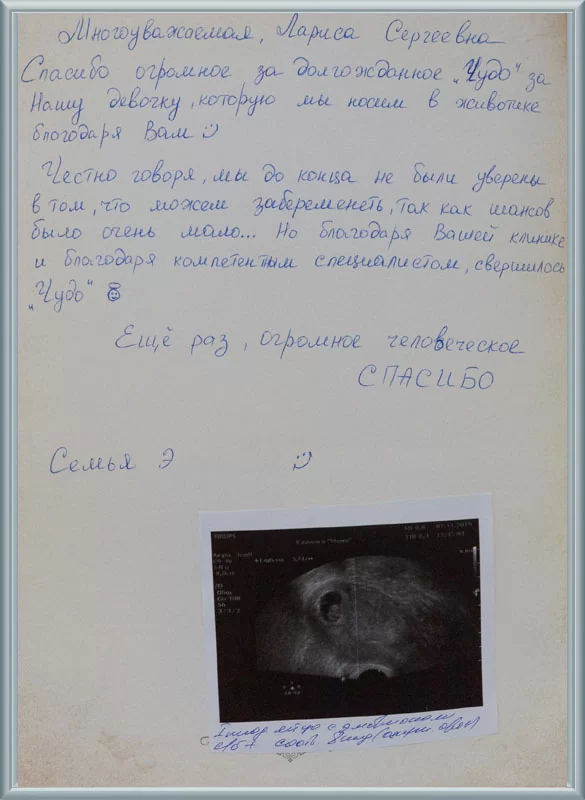 Многоуважаемая, Лариса Сергеевна
Спасибо огромное за долгожданное „Чудо" за
Нашу девочку, которую мы носим в животике
благодаря Вам :)
Честно говоря, мы до конца не были уверены
в том, что можем забеременеть, так как шансов
было очень мало... Но благодаря Вашей клинике
и благодаря компетентным специалистом, свершилось
„Чудо"
Ещё раз, огромное человеческое
СПАСИБО
Семья Э :)
PHILIPS
I плод яйцо с эмбрионом